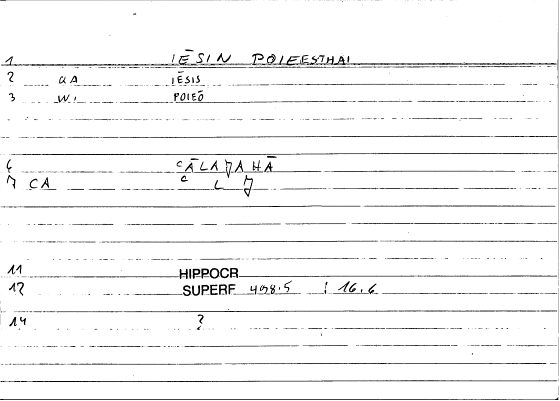 1 IĒSIN POIEESTHAI
2 QA IĒSIS
3 WI POIEŌ
6 ͨĀLAJAHĀ
7 CA C L J
11 HIPPOCR
12 SUPERF 498.5 : 16.6
14 ?